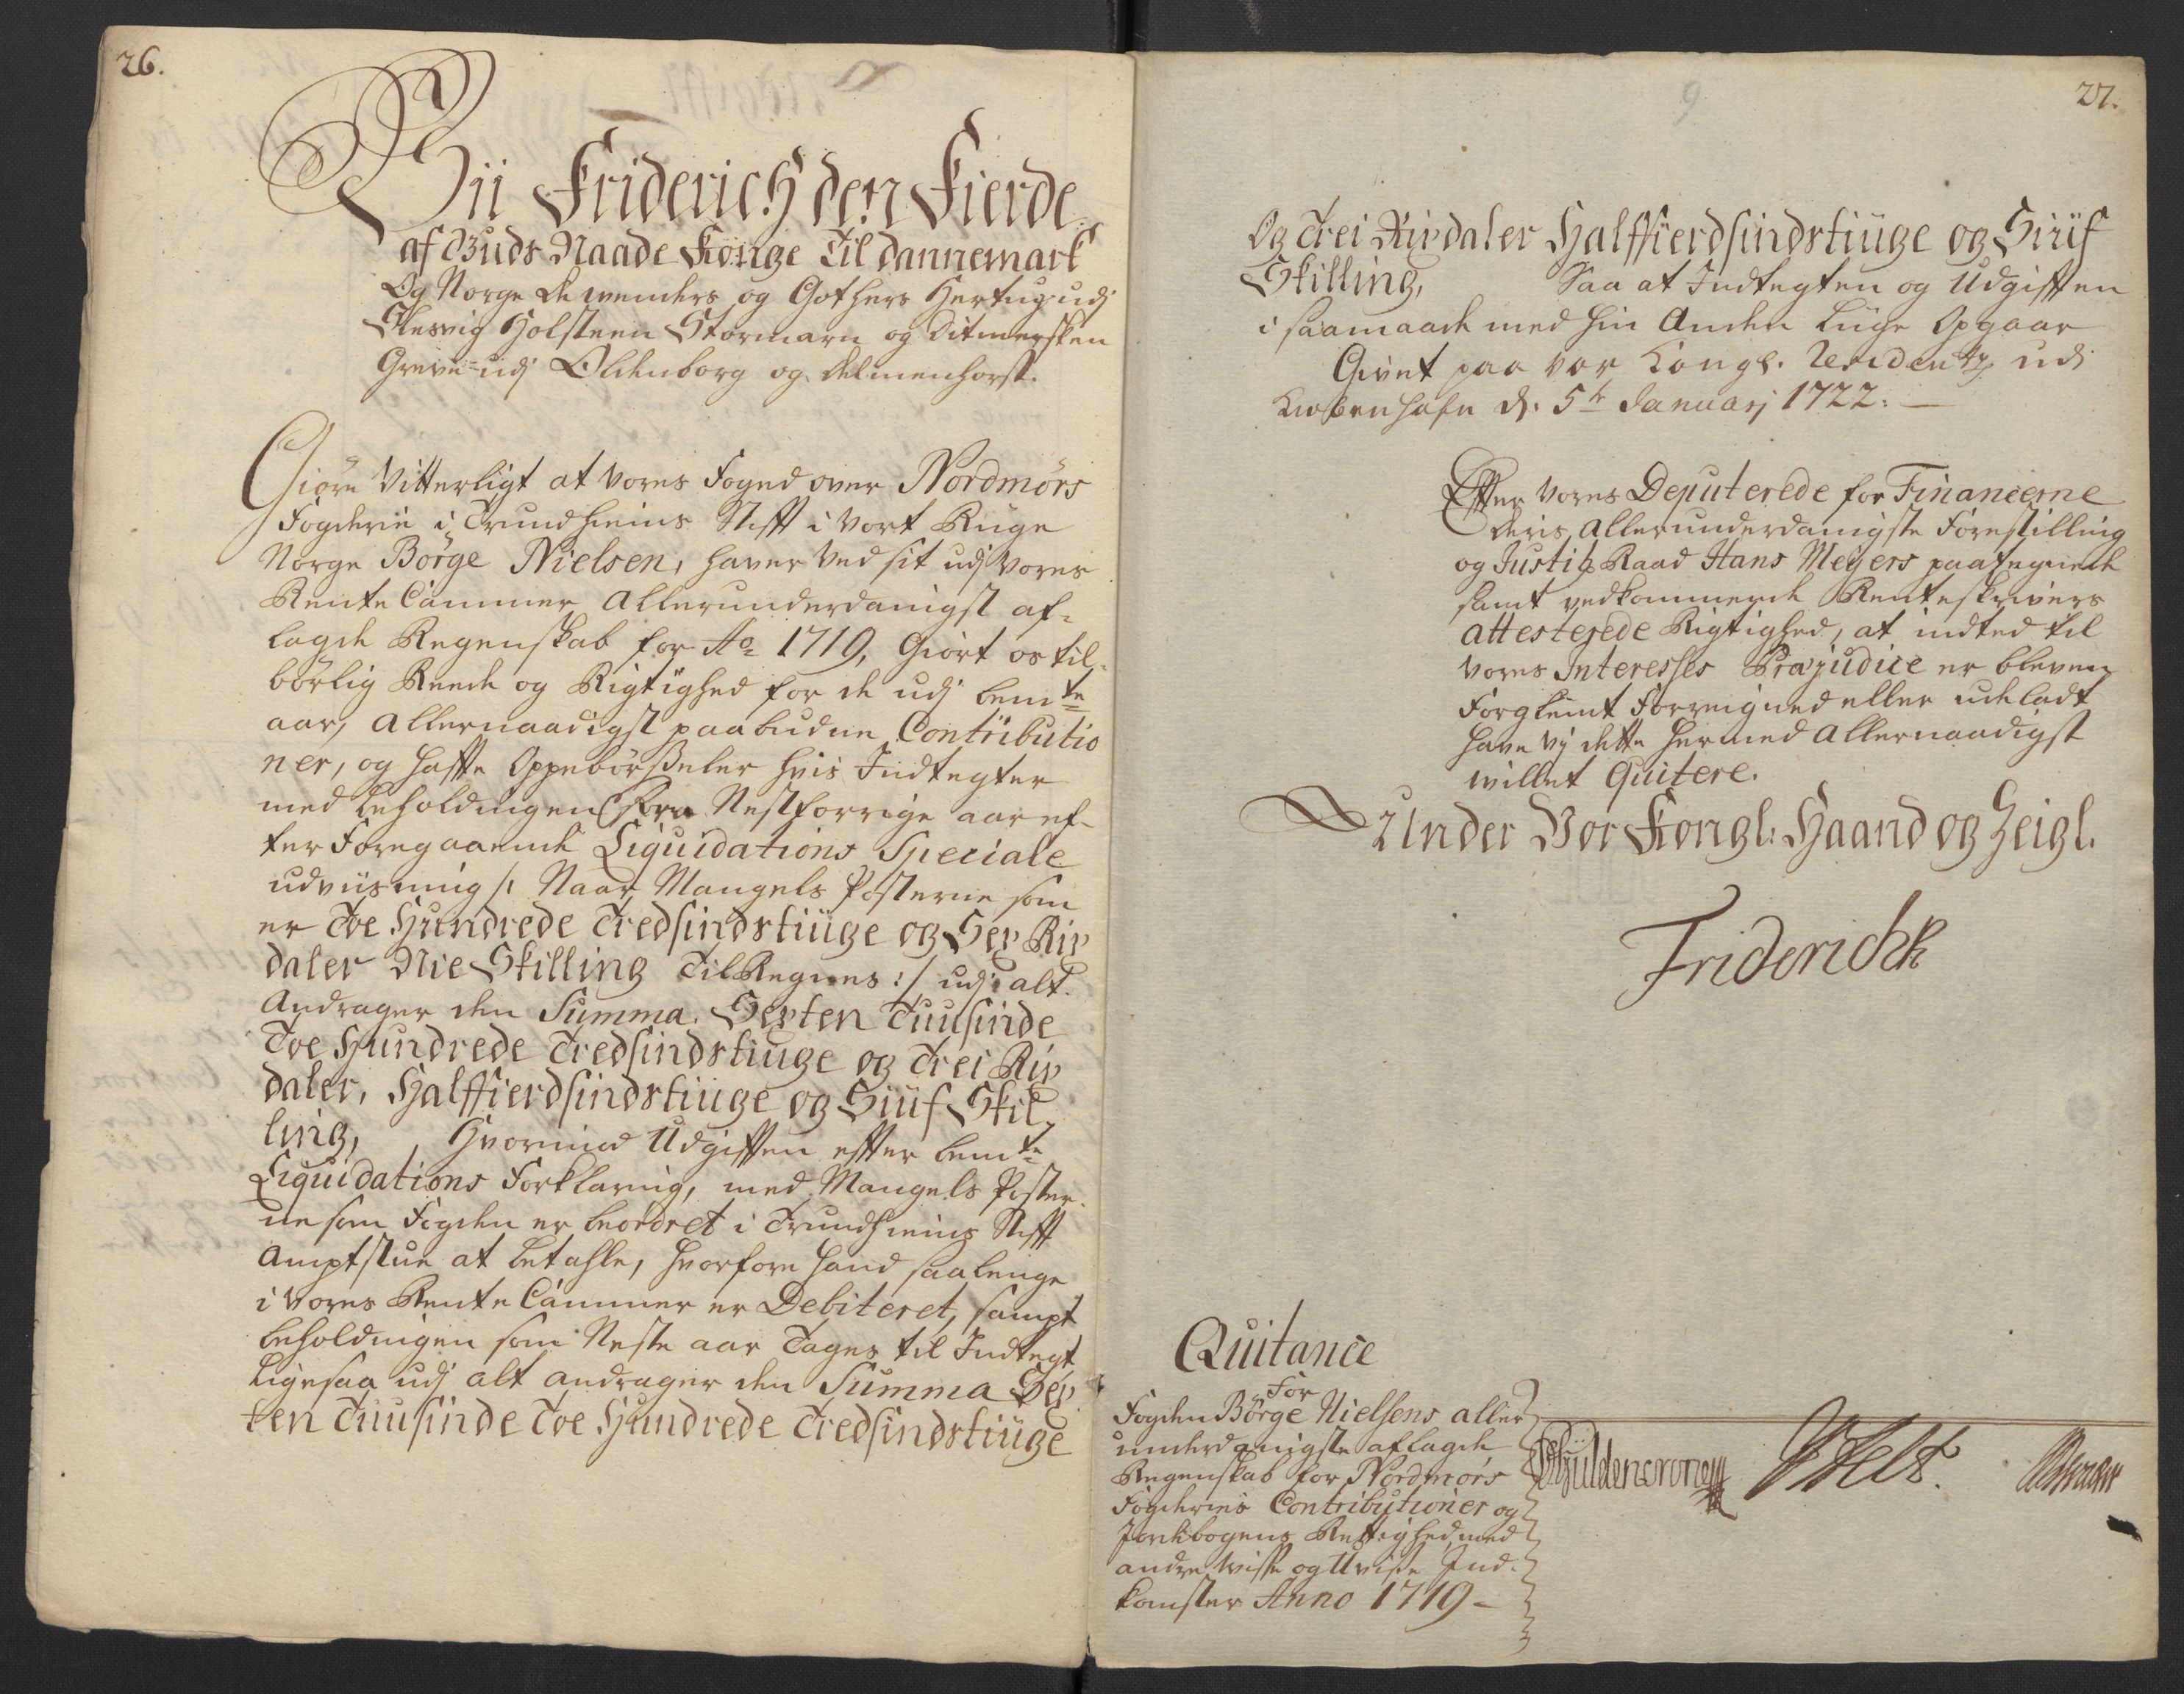 26.
Vii Friderich den Fierde
af Guds Naade Konge Til Dannemark
Og Norge de Wenders og Gothers Hertug udj
Slesvig Holsteen Stormarn og Ditmersken
Greve udj Oldenborg og Delmenhorst.
Giöre Vitterligt at Vores Foged over Nordmörs
Fögderie i Trundhiems Stifft i Vort Riige
Norge Börge Nielsen, haver Ved sit udj Vores
Rente Cammer Allerunderdanigst af-
lagde Regenskab for Ao 1719, Giort os til-
börlig Reede og Rigtighed for de udj bemte
aar, Allernaadigst paabudne Contributio
ner, og haffte Oppebörßeler hvis Indtegter
med beholdningen fra Nestforrige aar ef-
ter Foregaaende Liquidations Speciale
udviisning /: Naar Mangels Posterne som
er Toe Hundrede Tredsindstiuge og Sex Rix
daler Nie Skilling Til Regnes :/ udj alt
Andrager den Summa. Sexten Tuusinde
Toe Hundrede Tredsindstiuge og Trei Rix
daler, Halffierdsindstiuge og Siuf Skil-
ling, Hvorimod Udgifften effter bemte
Liquidations Forklaring, med Mangels Poster-
ne som Fogden er beordret i Trundhiems Stifft
Amptstue at betahle, hvorfore hand saalenge
i Vores Rente Cammer er Debiteret, sampt
beholdningen som Neste aar Tages til Indtegt
Ligesaa udj alt andrager den Summa Sex
ten Tuusinde Toe Hundrede Tredsindstiuge
27.
9
Og Trei Rixdaler Halffierdsindstiuge og Siuf
Skilling, Saa at Indtegten og Udgifften
i saamaade med hin Anden Liige Opgaar
Givet paa Vor Kongl. Residentz udi
Kiøbenhafn d. 5te Januarj 1722:
Effter Vores Deputerede for Financerne
deris Allerunderdanigste Forestilling
og Justitz Raad Hans Meyers paategnede
samt vedkommende Renteskrivers
attesterede Rigtighed, at indted til
Vores Interesses Præjudice er bleven
Forglemt Forreigned eller udeladt
have Vj dette hermed Allernaadigst
willet Quitere.
Under Vor Kongl: Haand og Zeigl.
Friderich R
Quitance
For
Fogden Börge Nielsens aller
underdanigste aflagde
Regenskab for Nordmörs
Fögderies Contributioner og
Jordebogens Rettighed med
andre Wisse og Uvisse Ind-
komster Anno 1719 -
Güldencrone